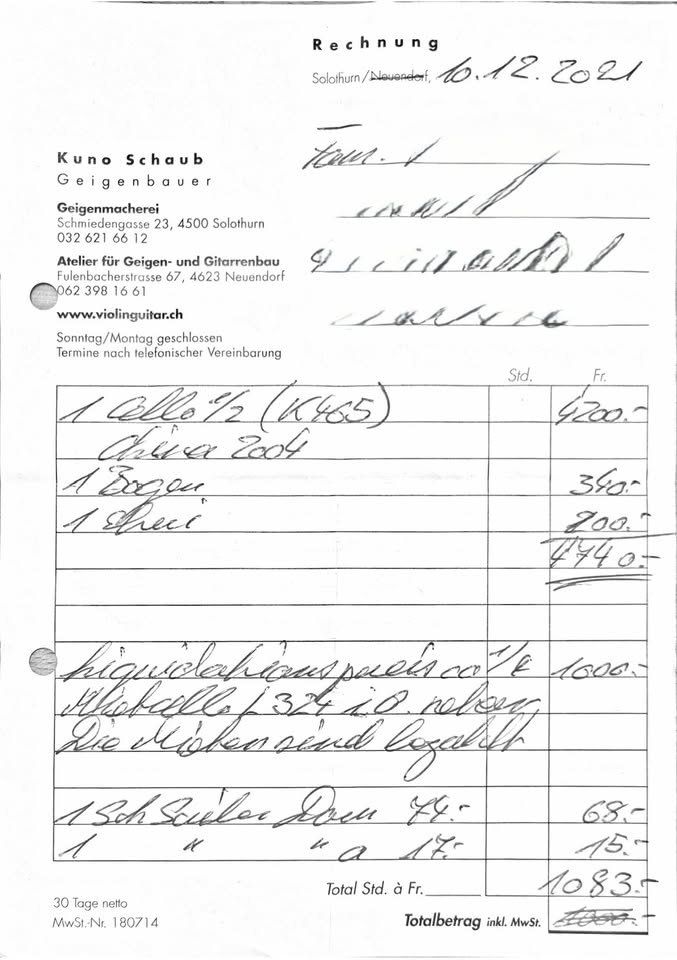 Rechnung
Solothurn/Neuendorf, 10.12.2021
Fam.
Kuno Schaub
Geigenbauer
Geigenmacherei
Schmiedengasse 23, 4500 Solothurn
032 621 66 12
Atelier für Geigen- und Gitarrenbau
Fulenbacherstrasse 67, 4623 Neuendorf
062 398 16 61
www.violinguitar.ch
Sonntag/Montag geschlossen
Termine nach telefonischer Vereinbarung
Std. Fr.
1 Cello 1/2 (K465) 4200.-
China 2004
1 Bogen 340.-
1 Etui 200.-
4740.-
Liquidationspreis 1000.-
Mietcello L324 i.O.
Die Mieten sind bezahlt
1 Saite Dom 74.- 68.-
1 " " a 17.- 15.-
Total Std. à Fr. 1083.-
30 Tage netto
MwSt.-Nr. 180714
Totalbetrag inkl. MwSt. 1000.-